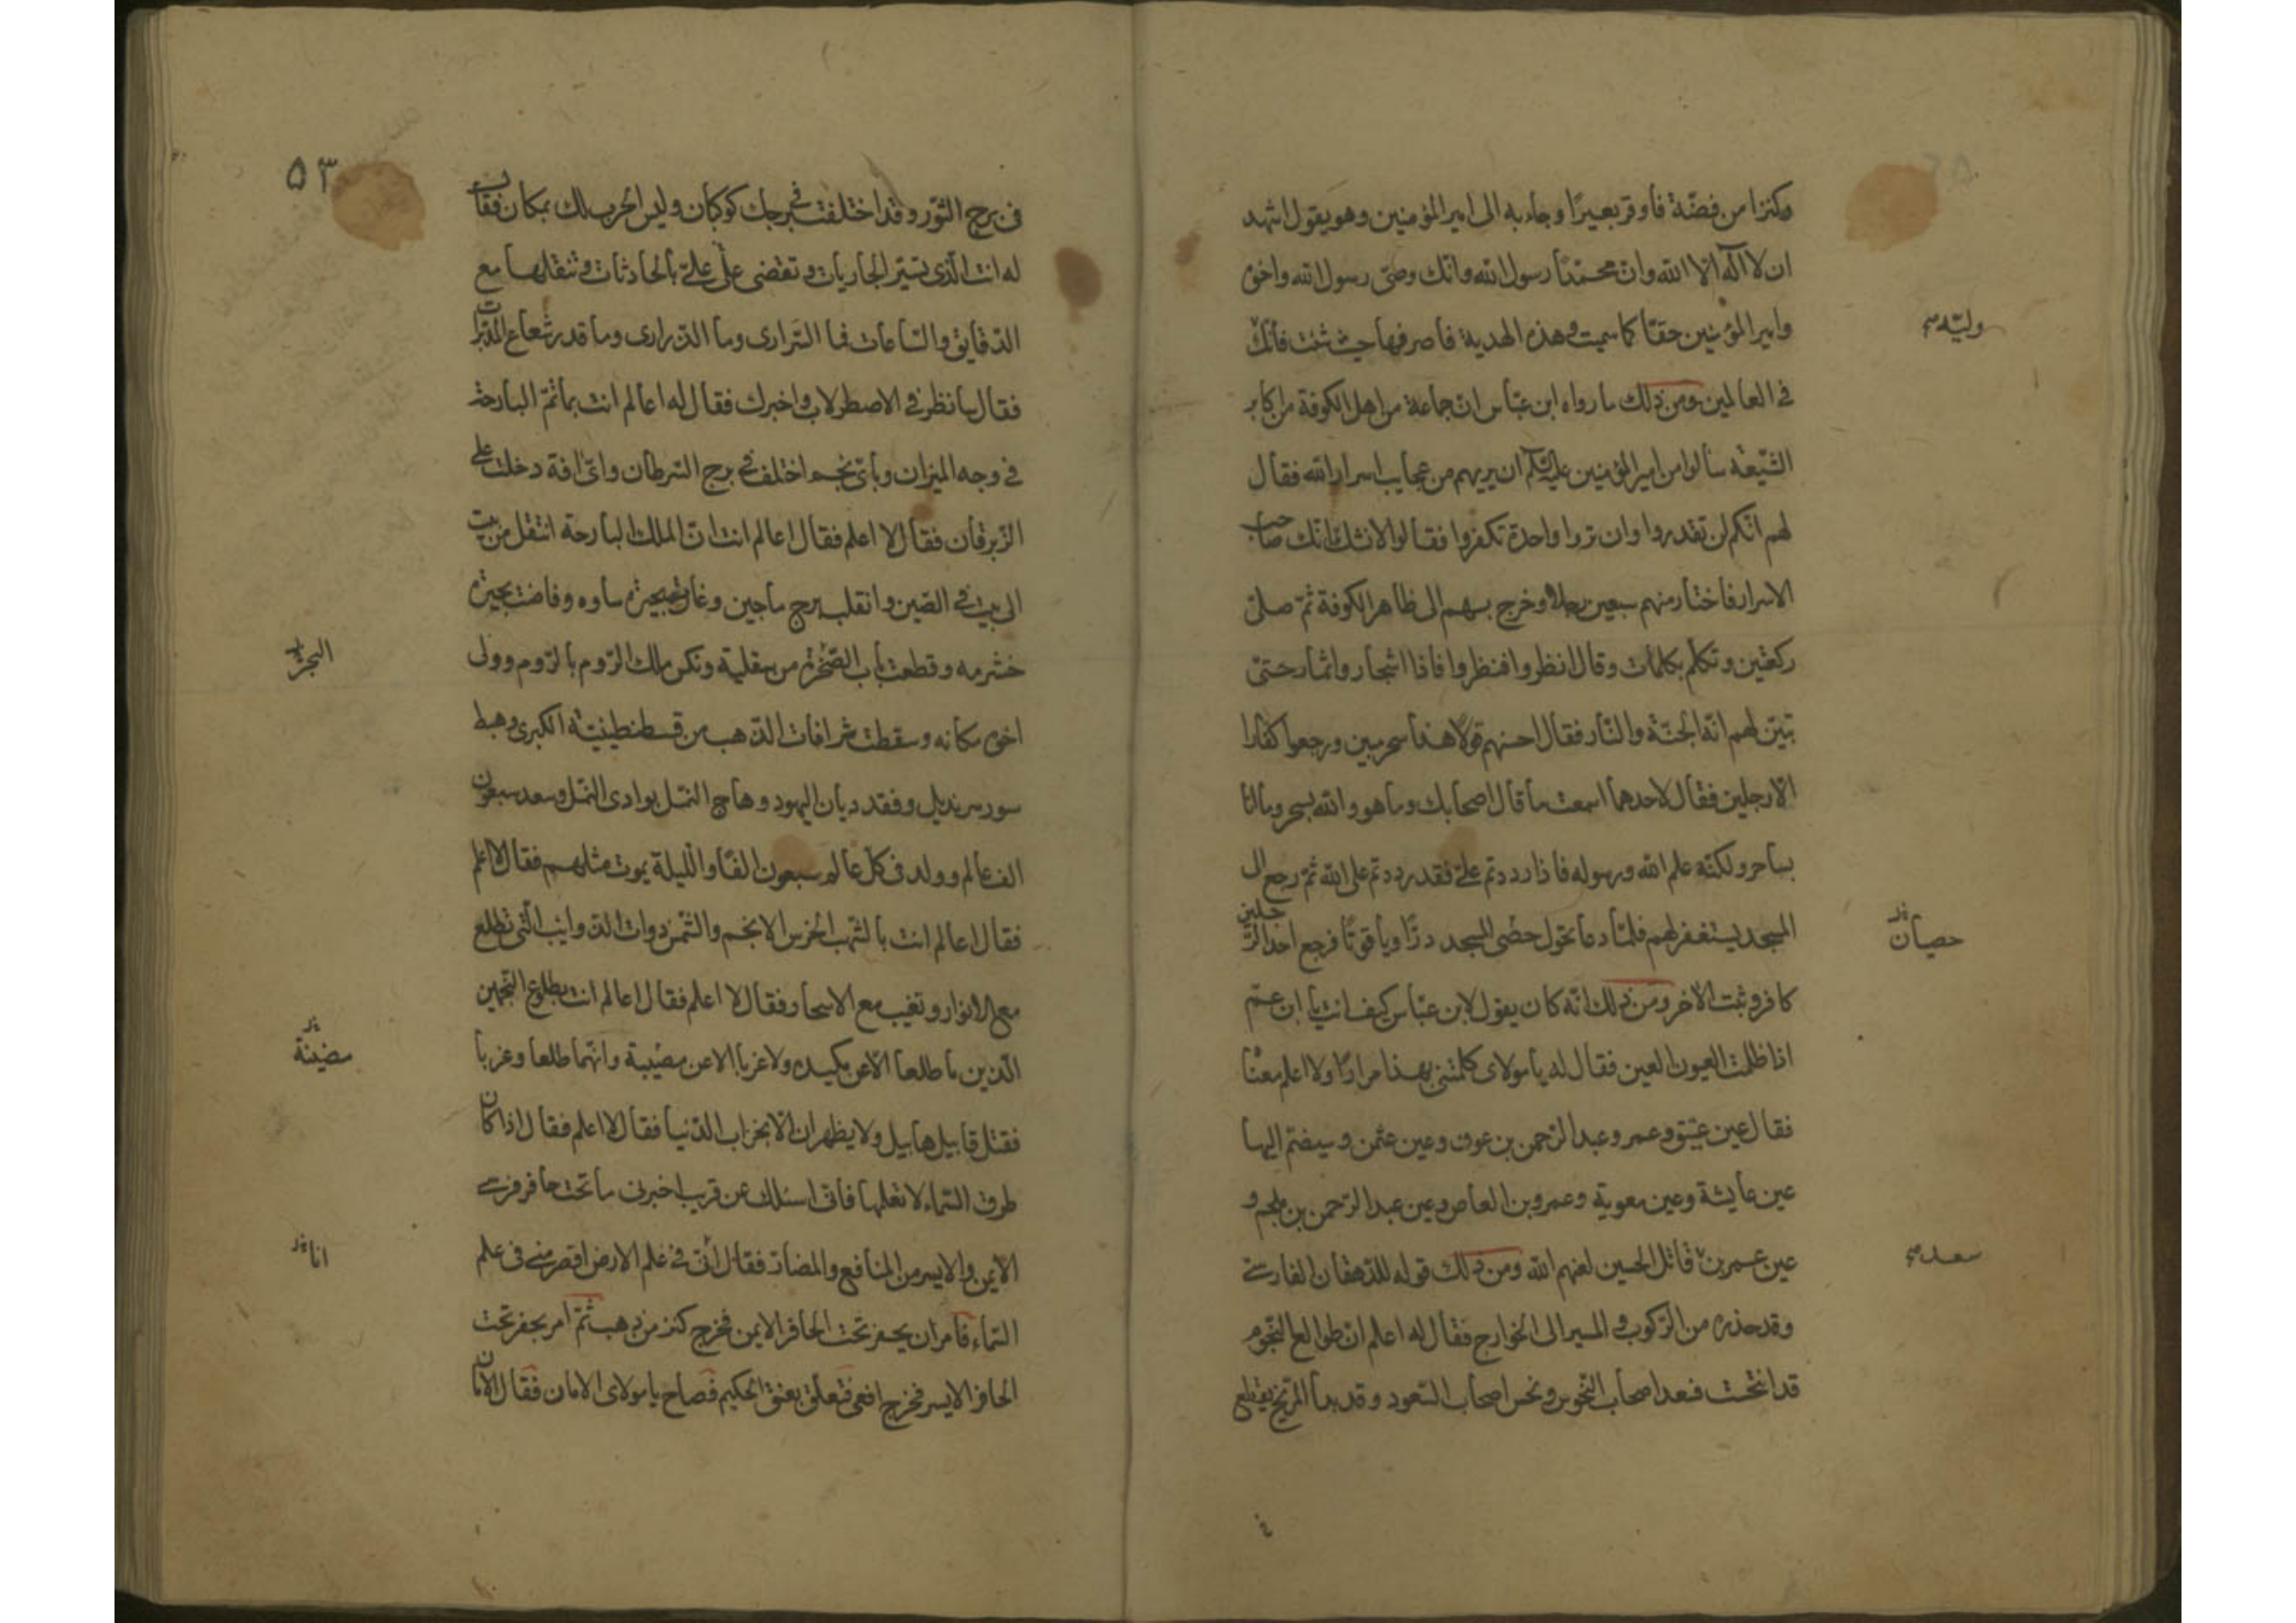 وكنزا من فضّة فأوقر بعيرًا وجاء به الى امير المؤمنين وهو يقول اشهد
ان لا اله الا الله وان محمّدًا رسول الله وانّك وصىّ رسول الله واخوه
وامير المؤمنين حقّا كما سميت وهذه الهدية فاصرفها حيث شئت فأنّك
وليّه
فى العالمين ومن ذلك ما رواه ابن عبّاس انّ جماعة من اهل الكوفة من اكابر
الشّيعة سألوا من امير المؤمنين ان يريهم من عجايب اسرار الله فقال
لهم انّكم لن تقدروا وان تروا واحدة تكفروا فقالوا لا نشك انّك صاحب
الاسرار فاختار منهم سبعين رجلا وخرج بهم الى ظاهر الكوفة ثمّ صلّى
ركعتين وتكلّم بكلمات وقال انظروا فنظروا فاذا اشجار واثمار حتىّ
تبيّن لهم انّه الجنّة والنّار فقال احسنهم قولا هذا سحر مبين ورجعوا كفّارا
الّا رجلين فقال لاحدهما اسمعت ما قال اصحابك وما هو والله بسحر وما انا
بساحر ولكنّه علم الله ورسوله فاذا رددتم علىّ فقد رددتم على الله ثمّ رجع الى
المسجد يستغفر لهم فلمّا دعا تحوّل حصى المسجد درًّا وياقوتًا فرجع احد الرّجلين
حصيان
كافر وثبت الآخر ومن ذلك انّه كان يقول لابن عبّاس كيف انت يا ابن عمّ
اذا ظلمت العيون العين فقال له يا مولاى كلمتنى بهذا مرارًا ولا اعلم معنا
فقال عين عتيق وعمر وعبد الرّحمن بن عوف وعين عثمن وسيضم اليها
عين عايشة وعين معوية وعمرو بن العاص وعين عبد الرّحمن بن ملجم و
عين عمر بن قاتل الحسين لعنهم الله ومن ذلك قوله للدّهقان الفارسى
سعد
وقد حذره من الرّكوب والمسير الى الخوارج فقال له اعلم ان طوالع النّجوم
قد انتحست فسعد اصحاب النّحوس ونحس اصحاب السّعود وقد بدأ المرّيخ يقطع
٥٣
فى برج الثّور وقد اختلفت فى برجك كوكبان وليس الحرب لك بمكان فقال
له انت الّذى تسيّر الجاريات وتقضى علىّ بالحادثات وتنقلها مع
الدّقايق والسّاعات فما السّرارى وما الدّرارى وما قدر شعاع المدبّرات
فقال سانظر فى الاصطرلاب واخبرك فقال له اعالم انت بما تمّ البارحة
فى وجه الميزان وبأىّ نجم اختلف فى برج السّرطان واىّ افة دخلت على
الزّبرقان فقال لا اعلم فقال اعالم انت انّ الملك البارحة انتقل من بيت
الى بيت فى الصّين وانقلب برج ماجين وغارت بحيرة ساوه وفاضت بحيرة
خشرمه وقطعت باب الصّخرة من سقلية ونكس ملك الرّوم بالرّوم وولى
البحر
اخوه مكانه وسقطت شرافات الذّهب من قسطنطينيّة الكبرى وهبط
سور سرنديل وفقد ديان اليهود وهاج النّمل بوادى النّمل وسعد سبعون
الف عالم وولد فى كل عالم سبعون الفًا واللّيلة يموت مثلهم فقال لا اعلم
فقال اعالم انت بالشّهب الخرس الانجم والشّمس ذوات الذّوايب الّتى تطلع
مع الانوار وتغيب مع الاسحار فقال لا اعلم فقال اعالم انت بطلوع النّجمين
الّذين ما طلعا الّا عن مكيده ولا غربا الا عن مصيبة وانّهما طلعا وغربا
فقتل قابيل هابيل ولا يظهران الّا بخراب الدّنيا فقال لا اعلم فقال اذا كان
طرق السّماء لا تعلمها فانّى اسئلك عن قريب اخبرنى ما تحت حافر فرسى
الايمن والايسر من المنافع والمضار فقال انّى فى علم الارض اقصر منّى فى علم
انا
السّماء فامر ان يحفر تحت الحافر الايمن فخرج كنز من ذهب ثمّ امر بحفر تحت
الحافر الايسر فخرج افعى فتعلّق بعنق الحكيم فصاح يا مولاى الامان فقال الامان